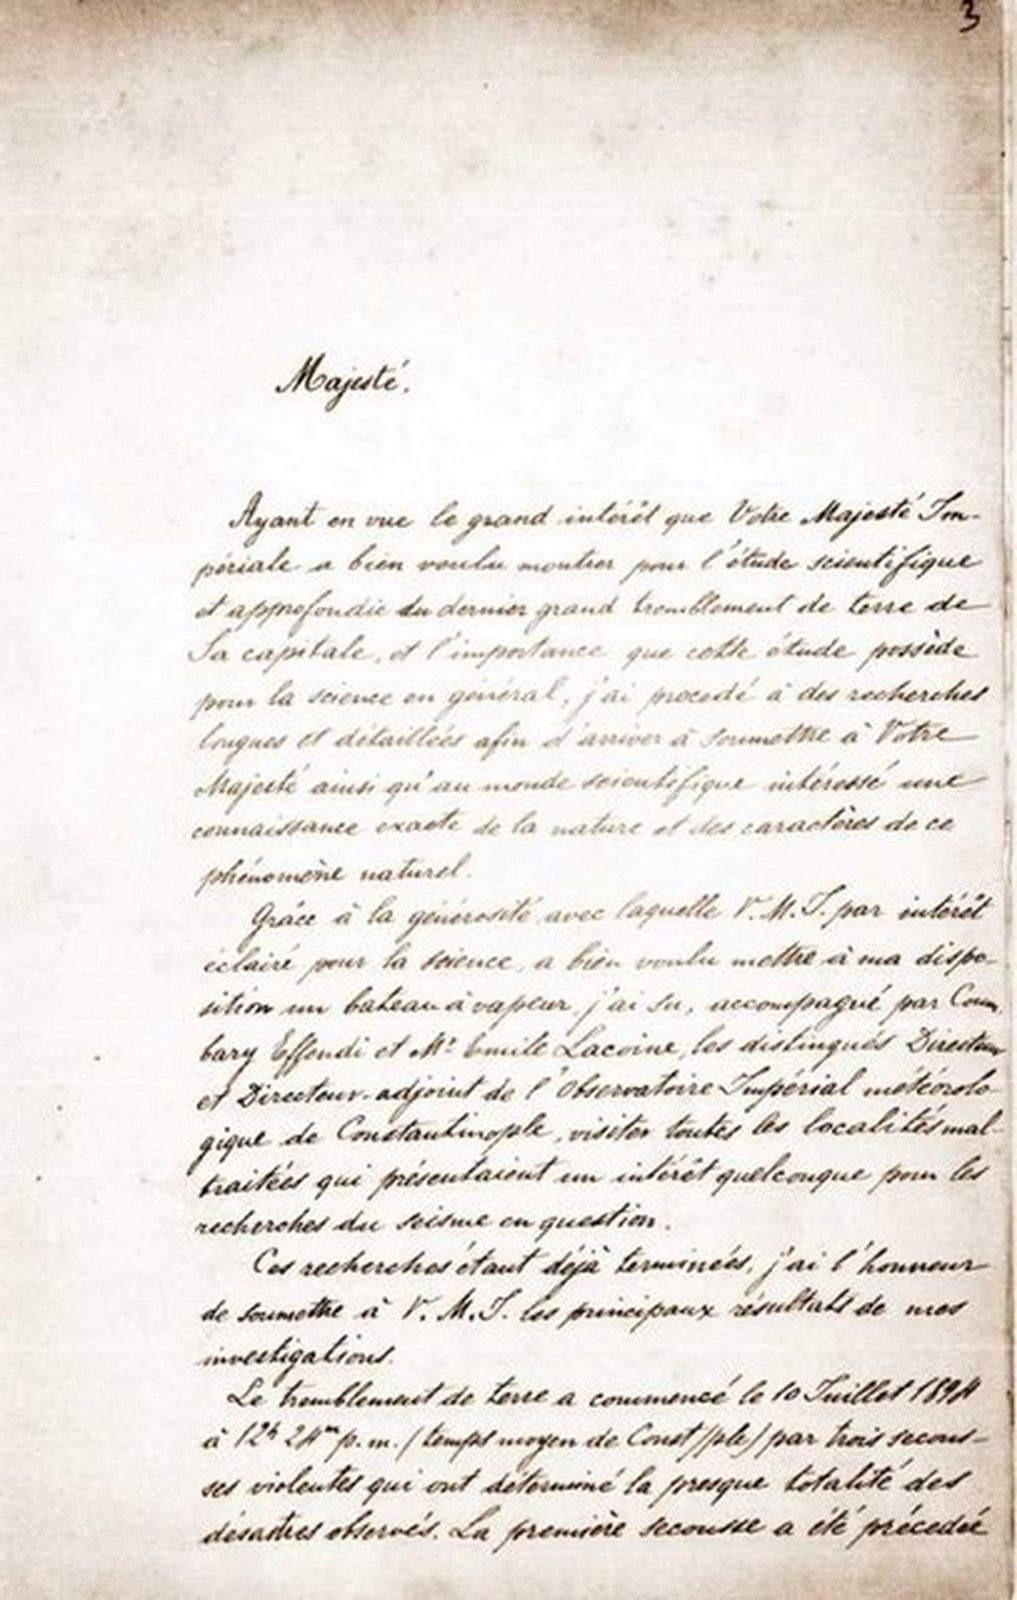 3
Majesté.
Ayant en vue le grand intérêt que Votre Majesté Im-
périale a bien voulu montrer pour l'étude scientifique
et approfondie du dernier grand tremblement de terre de
Sa capitale, et l'importance que cette étude possède
pour la science en général, j'ai procedé à des recherches
longues et détaillées afin d'arriver à soumettre à Votre
Majesté ainsi qu'au monde scientifique intéressé une
connaissance exacte de la nature et des caractères de ce
phénomène naturel.
Grâce à la générosité avec laquelle V. M. I. par intérêt
éclairé pour la science, a bien voulu mettre à ma dispo-
sition un bateau à vapeur, j'ai su, accompagné par Coum
bary Effendi et Mr Emile Lacoine, les distingués Directeur
et Directeur-adjoint de l'Observatoire Impérial météorolo-
gique de Constantinople, visiter toutes les localités mal-
traitées qui présentaient un intérêt quelconque pour les
recherches du seisme en question.
Ces recherches étant déjà terminées, j'ai l'honneur
de soumettre à V. M. I. les principaux résultats de mes
investigations.
Le tremblement de terre a commencé le 10 Juillet 1894
à 12h 24m p. m. (temps moyen de Const/ple) par trois secous-
ses violentes qui ont déterminé la presque totalité des
désastres observés. La première secousse a été précedée